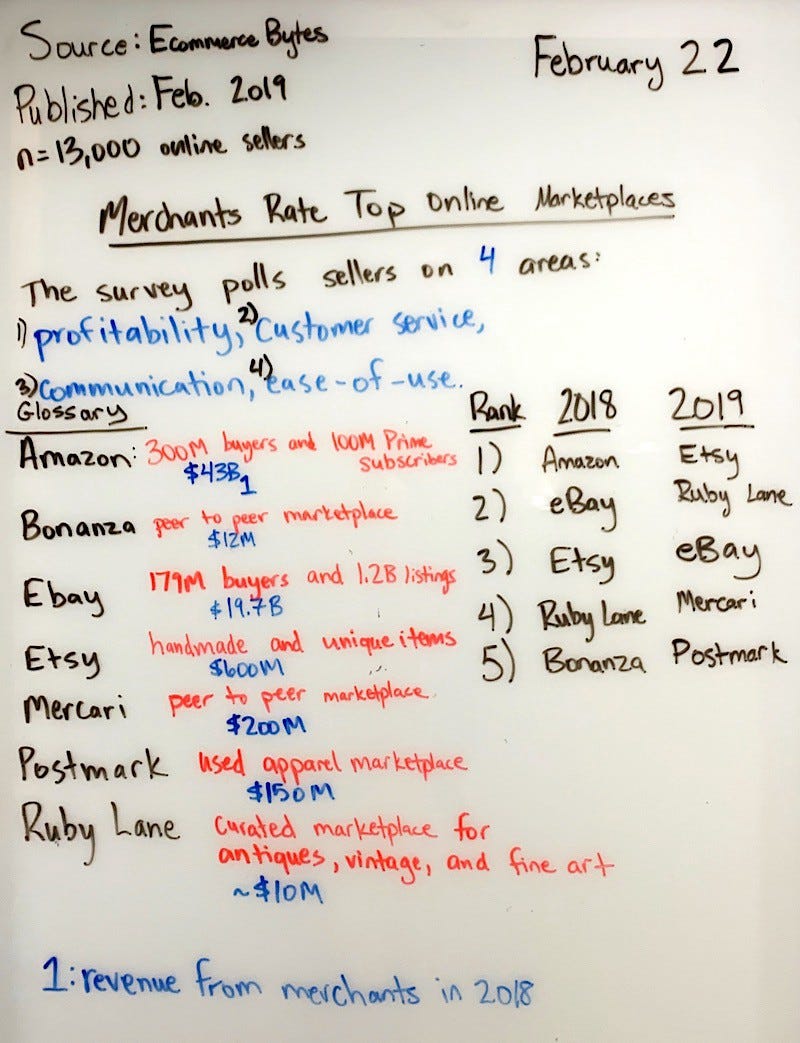 Source: Ecommerce Bytes
February 22
Published: Feb. 2019
n=13,000 online sellers
Merchants Rate Top Online Marketplaces
The survey polls sellers on 4 areas:
1) profitability, 2) Customer service,
3) communication, 4) ease-of-use.
Glossary
Amazon: 300M buyers and 100M Prime
subscribers
$43B1
Bonanza peer to peer marketplace
$12M
Ebay 179M buyers and 1.2B listings
$19.7B
Etsy handmade and unique items
$600M
Mercari peer to peer marketplace
$200M
Postmark used apparel marketplace
$150M
Ruby Lane Curated marketplace for
antiques, vintage, and fine art
~$10M
Rank 2018 2019
1) Amazon Etsy
2) eBay Ruby Lane
3) Etsy eBay
4) Ruby Lane Mercari
5) Bonanza Postmark
1: revenue from merchants in 2018